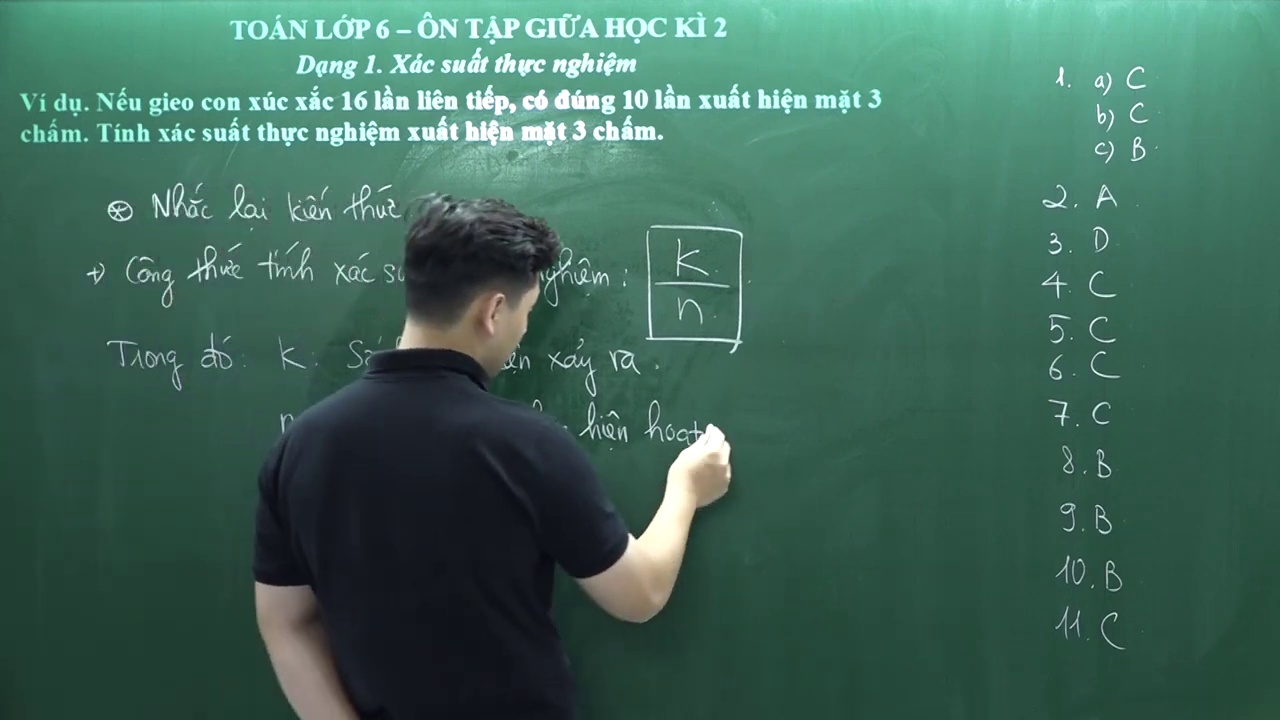 TOÁN LỚP 6 – ÔN TẬP GIỮA HỌC KÌ 2
Dạng 1. Xác suất thực nghiệm
Ví dụ. Nếu gieo con xúc xắc 16 lần liên tiếp, có đúng 10 lần xuất hiện mặt 3
chấm. Tính xác suất thực nghiệm xuất hiện mặt 3 chấm.
Nhắc lại kiến thức
+) Công thức tính xác nghiệm :
k
n
Trong đó: k: xảy ra.
n hiện hoạt
1. a) C
b) C
c) B
2. A
3. D
4. C
5. C
6. C
7. C
8. B
9. B
10. B
11. C